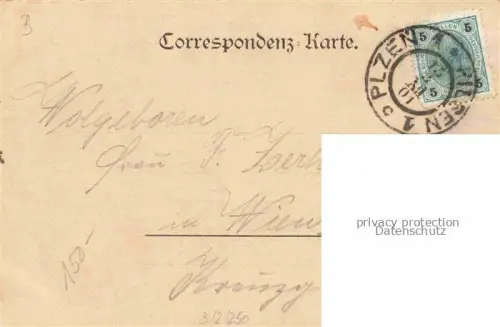 3
Correspondenz-Karte.
5 5
5 5
PLZEN 1 * PILSEN 1
01
Wolgeboren
Frau F. Zerh
in Wien
Kreuzg
150-
privacy protection
Datenschutz